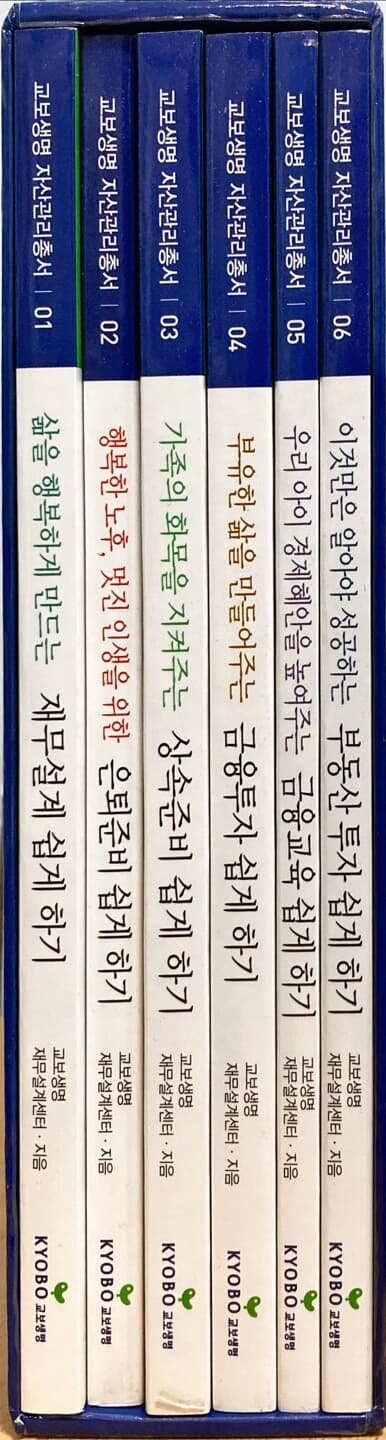 교보생명 자산관리총서 | 01
삶을 행복하게 만드는 재무설계 쉽게 하기
교보생명
재무설계센터 · 지음
KYOBO 교보생명
교보생명 자산관리총서 | 02
행복한 노후, 멋진 인생을 위한 은퇴준비 쉽게 하기
교보생명
재무설계센터 · 지음
KYOBO 교보생명
교보생명 자산관리총서 | 03
가족의 화목을 지켜주는 상속준비 쉽게 하기
교보생명
재무설계센터 · 지음
KYOBO 교보생명
교보생명 자산관리총서 | 04
부유한 삶을 만들어주는 금융투자 쉽게 하기
교보생명
재무설계센터 · 지음
KYOBO 교보생명
교보생명 자산관리총서 | 05
우리 아이 경제혜안을 높여주는 금융교육 쉽게 하기
교보생명
재무설계센터 · 지음
KYOBO 교보생명
교보생명 자산관리총서 | 06
이것만은 알아야 성공하는 부동산 투자 쉽게 하기
교보생명
재무설계센터 · 지음
KYOBO 교보생명